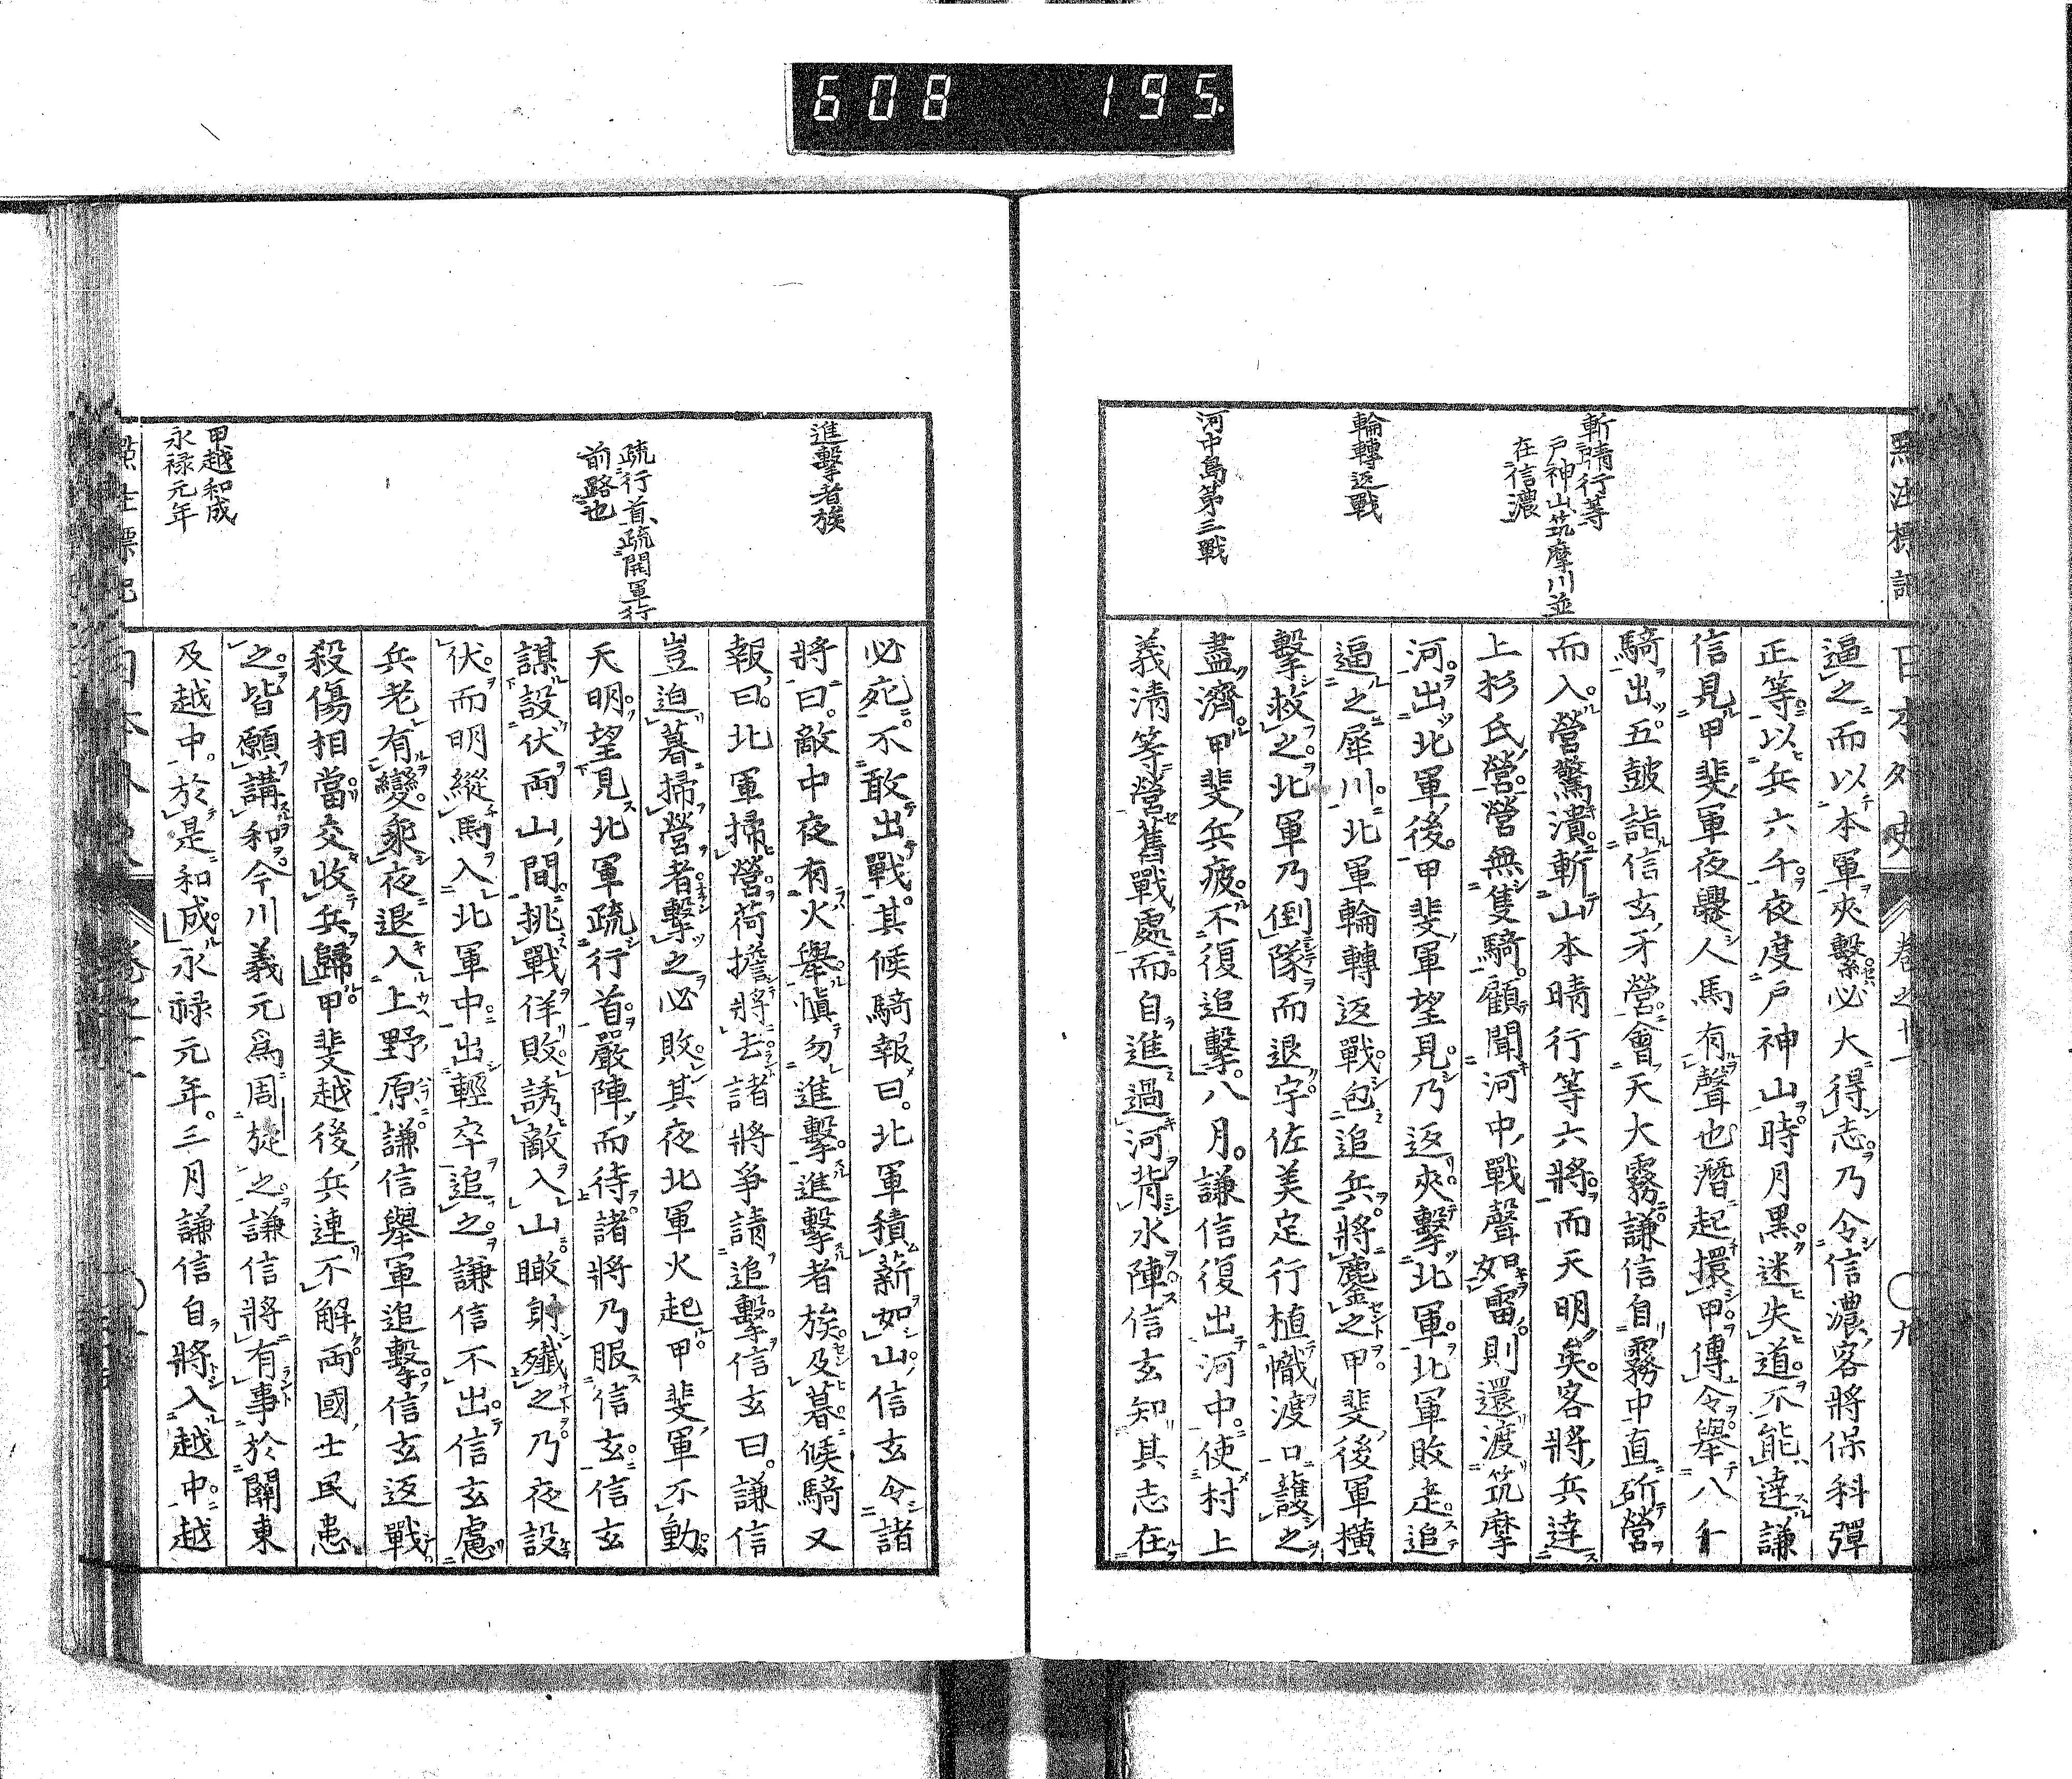 608 195.
逼之而以本軍夾繫必大得志乃令信濃客將保科彈
正等以兵六千夜度戸神山時月黑迷失道不能達謙
信見甲斐軍夜爨人馬有聲也潛起擐甲傳令舉八千
騎出五皷詣信玄牙營會天大霧謙信自霧中直斫營
而入營驚潰斬山本晴行等六將而天明矣客將兵達
上杉氏營營無隻騎顧聞河中戰聲如雷則還渡筑摩
河出北軍後甲斐軍望見乃返夾擊北軍北軍敗走追
逼之犀川北軍輪轉返戰包追兵將鏖之甲斐後軍橫
擊救之北軍乃倒隊而退宇佐美定行植幟渡口護之
盡濟甲斐兵疲不復追擊八月謙信復出河中使村上
義清等營舊戰處而自進過河背水陣信玄知其志在
斬晴行等
戸神山筑摩川並
在信濃
輪轉返戰
河中島第三戰
日本外史 卷之十一 九
必死不敢出戰其候騎報曰北軍積薪如山信玄令諸
將曰敵中夜有火舉慎勿進擊進擊者族及暮候騎又
報曰北軍掃營荷擔將去諸將爭請追擊信玄曰謙信
豈迫暮掃營者擊之必敗其夜北軍火起甲斐軍不動
天明望見北軍疏行首嚴陣而待諸將乃服信玄信玄
謀設伏兩山間挑戰佯敗誘敵入山瞰射殲之乃夜設
伏而明縱馬入北軍中出輕卒追之謙信不出信玄慮
兵老有變乘夜退入上野原謙信舉軍追擊信玄返戰
殺傷相當交收兵歸甲斐越後兵連不解兩國士民患
之皆願講和今川義元為周旋之謙信將有事於關東
及越中於是和成永禄元年三月謙信自將入越中越
進擊者族
疏行首疏開軍行
前路也
甲越和成
永禄元年